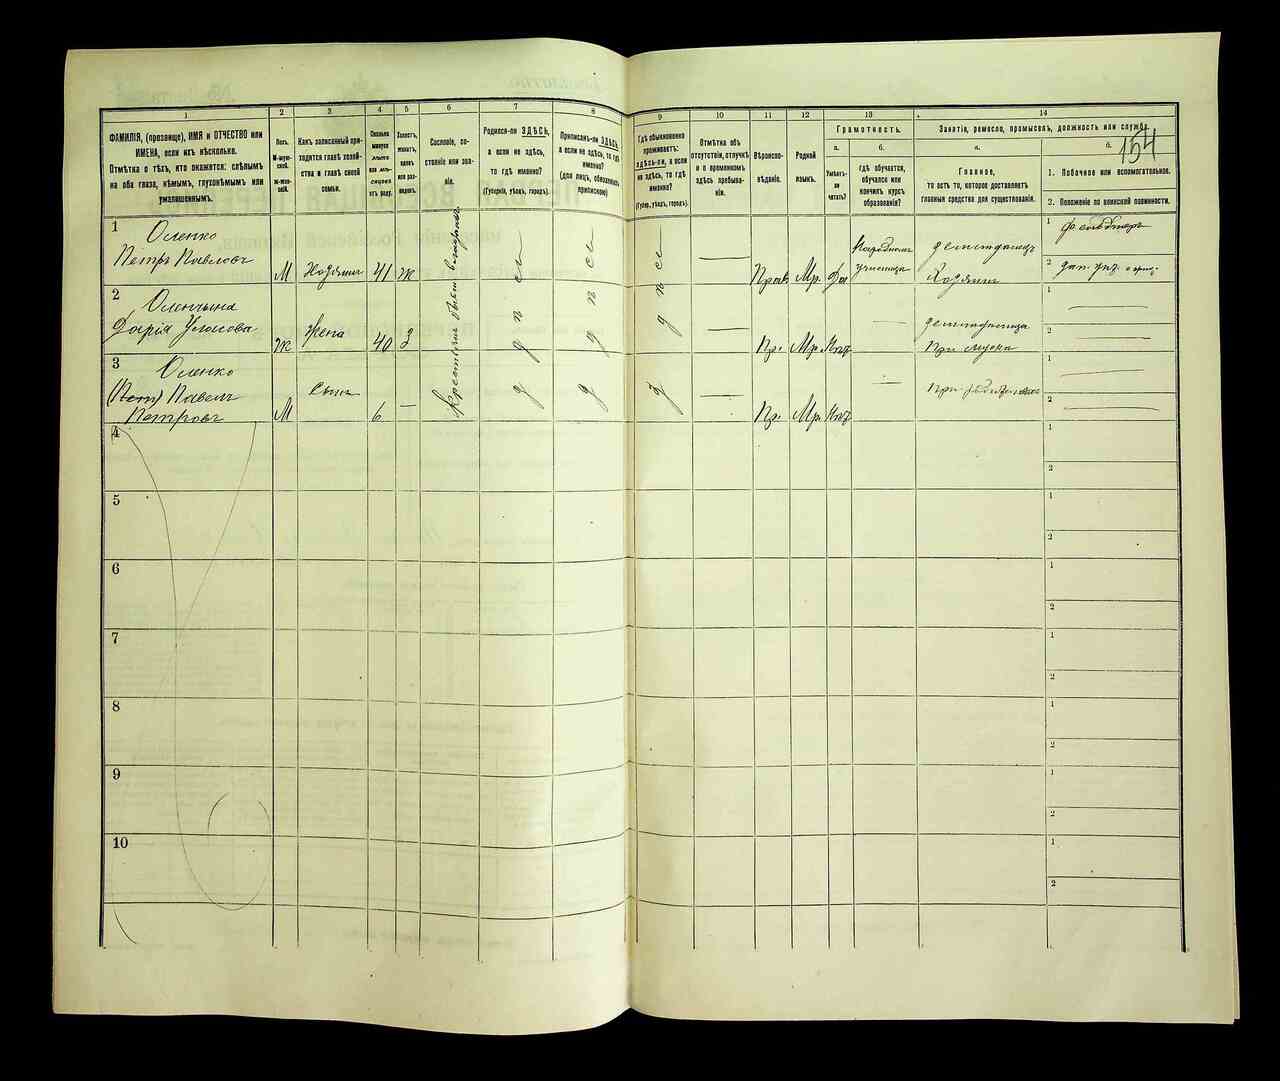 1
2
3
4
5
6
7
8
9
10
11
12
13
14
ФАМИЛІЯ, (прозвище), ИМЯ и ОТЧЕСТВО или
ИМЕНА, если ихъ нѣсколько.
Отмѣтка о тѣхъ, кто окажется: слѣпымъ
на оба глаза, нѣмымъ, глухонѣмымъ или
умалишеннымъ.
Полъ.
М-муж-
ской.
Ж-жен-
скій.
Какъ записанный при-
ходится главѣ хозяй-
ства и главѣ своей
семьи.
Сколько
минуло
лѣтъ
или мѣ-
сяцевъ
отъ роду.
Холостъ,
женатъ,
вдовъ
или раз-
веденъ.
Сословіе, со-
стояніе или зва-
ніе.
Родился-ли ЗДѢСЬ,
а если не здѣсь,
то гдѣ именно?
(Губернія, уѣздъ, городъ).
Приписанъ-ли ЗДѢСЬ,
а если не здѣсь, то гдѣ
именно?
(для лицъ, обязанныхъ
припискою)
Гдѣ обыкновенно
проживаетъ:
здѣсь-ли, а если
не здѣсь, то гдѣ
именно?
(Губер., уѣздъ, городъ).
Отмѣтка объ
отсутствіи, отлучкѣ
и о временномъ
здѣсь пребыва-
ніи.
Вѣроиспо-
вѣданіе.
Родной
языкъ.
Грамотность.
а.
б.
Умѣетъ-
ли
читать?
гдѣ обучается,
обучался или
кончилъ курсъ
образованія?
Занятіе, ремесло, промыселъ, должность или служба.
а.
б.
154
Главное,
то есть то, которое доставляетъ
главныя средства для существованія.
1. Побочное или вспомогательное.
2. Положеніе по воинской повинности.
1
Оленко
Петръ Павловъ
М
Хозяинъ
41
ж
Крестьяне
Прав.
Мр.
Да
Народномъ
училище
Хозяинъ
1
фельдшеръ
2
2
Оленчына
Дарія Уласова
Ж
Жена
40
З
Пр.
Мр.
Нѣтъ
При мужѣ
1
2
3
Оленко
(Пет) Павелъ
Петровъ
М
Сынъ
6
Пр.
Мр.
Нѣтъ
При родителяхъ
1
2
4
1
2
5
1
2
6
1
2
7
1
2
8
1
2
9
1
2
10
1
2